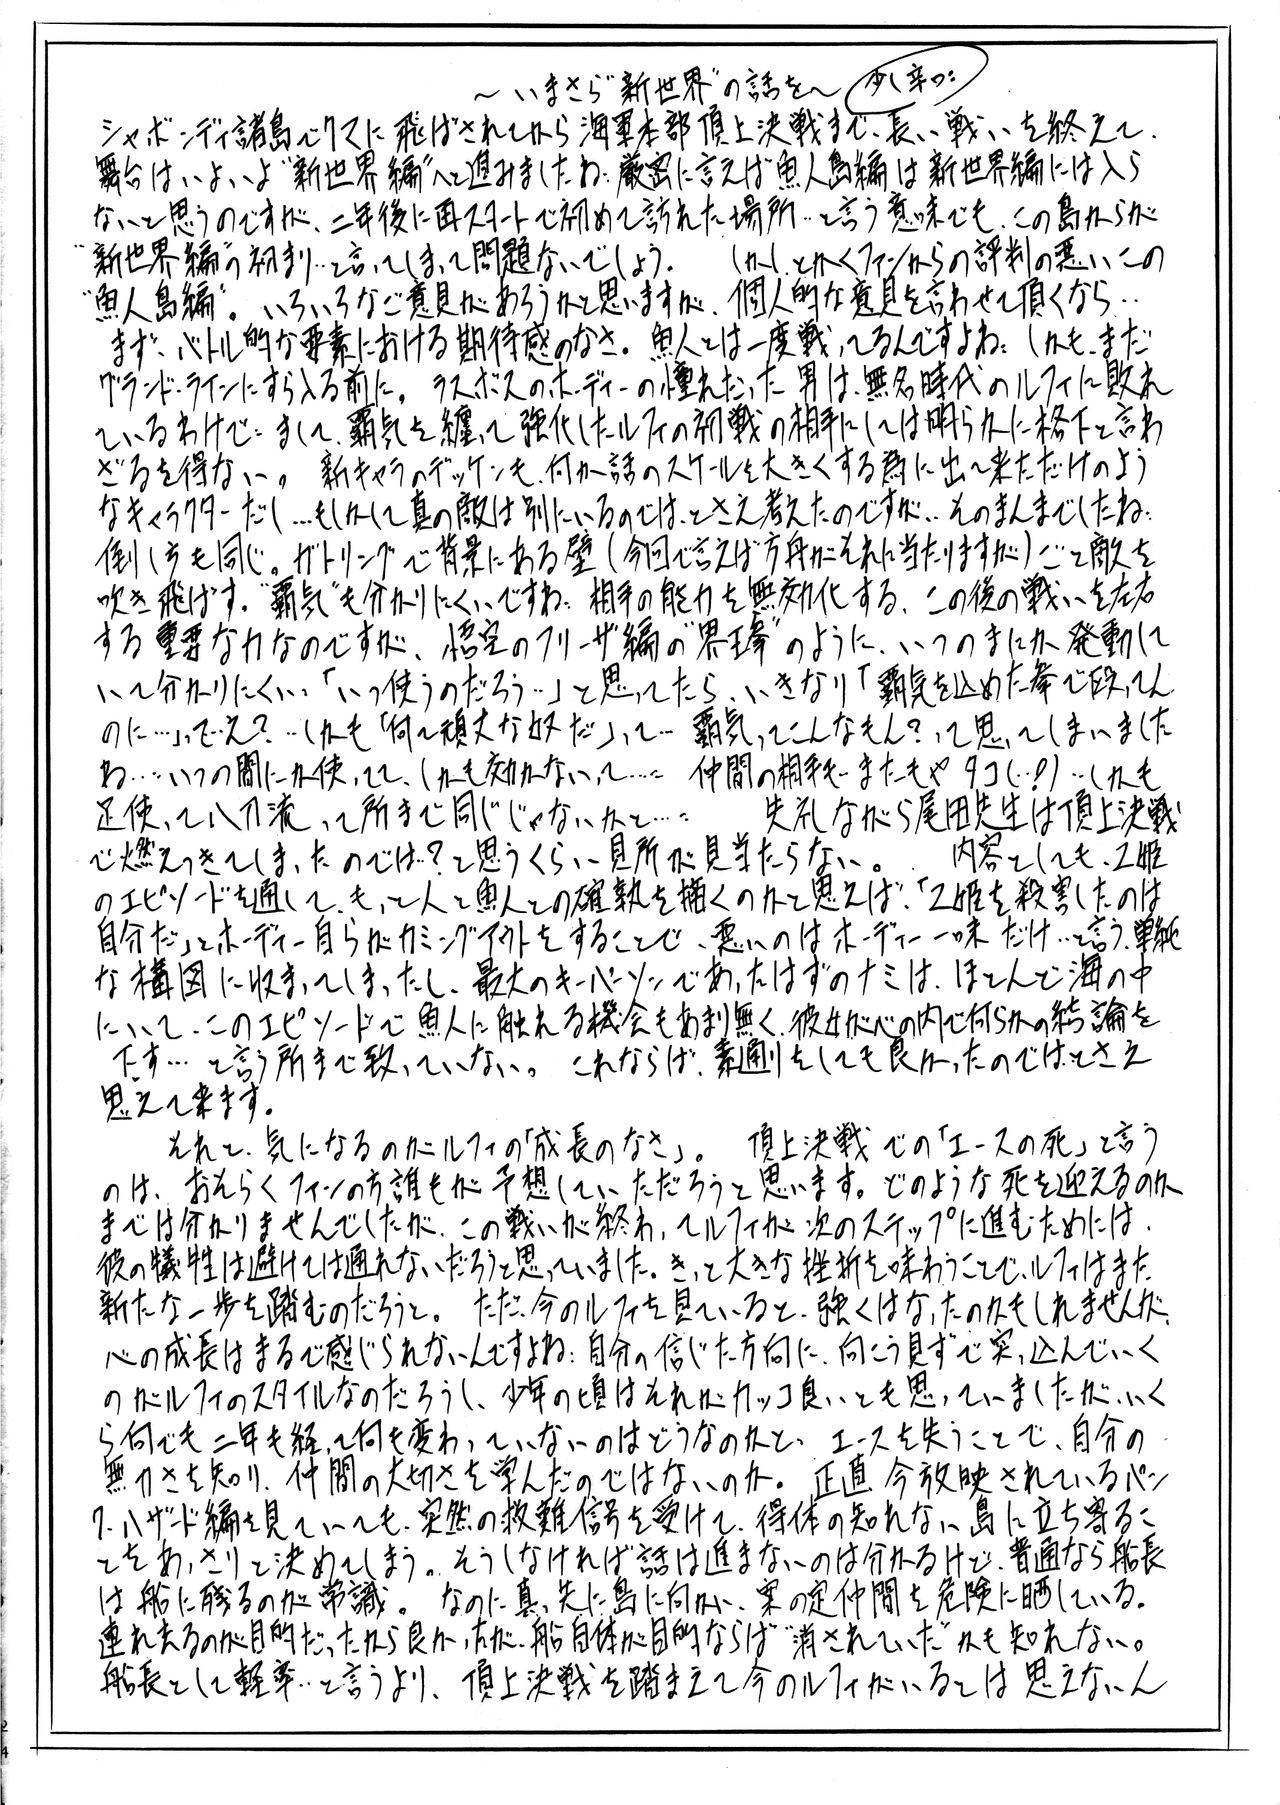 ～いまさら“新世界”の話を～ 少し辛口:
シャボンディ諸島でクマに飛ばされてから海軍本部頂上決戦まで、長い戦いを終えて、
舞台はいよいよ“新世界編”へと進みましたね: 厳密に言えば魚人島編は新世界編には入ら
ないと思うのですが、二年後に再スタートで初めて訪れた場所‥と言う意味でも、この島からが
“新世界編”の初まり‥と言ってしまって問題ないでしょう。 しかし、とかくファンからの評判の悪いこの
“魚人島編”。いろいろなご意見があろうかと思いますが、個人的な意見を言わせて頂くなら‥
まず、バトル的な要素における期待感のなさ。魚人とは一度戦ってるんですよね: しかも、まだ
グランド・ラインにすら入る前に。 ラスボスのホーディーの憧れだった男は、無名時代のルフィに敗れ
ているわけで: まして、覇気を纏って強化したルフィの初戦の相手にしては明らかに格下と言わ
ざるを得ない。 新キャラのデッケンも、何か話のスケールを大きくする為に出て来ただけのよう
なキャラクターだし…もしかして真の敵は別にいるのでは、とさえ考えたのですが‥そのまんまでしたね:
倒し方も同じ。ガトリングで背景にある壁(今回で言えば方舟がそれに当たりますが)ごと敵を
吹き飛ばす。“覇気”も分かりにくいですね: 相手の能力を無効化する、この後の戦いを左右
する重要な力なのですが、悟空のフリーザ編の“界王拳”のように、いつのまにか発動して
いて分かりにくい。「いつ使うのだろう‥」と思ってたら、いきなり「覇気を込めた拳で殴ってん
のに…」って‥え？‥しかも「何て頑丈な奴だ」って… 覇気ってこんなもん？って思ってしまいました
ね…いつの間にか使ってて、しかも効かないって…: 仲間の相手も‥またもやタコ(…!)‥しかも
足使って八刀流って所まで同じじゃないかと…: 失礼ながら尾田先生は頂上決戦
で燃えつきてしまったのでは？と思うくらい見所が見当たらない。 内容としても、乙姫
のエピソードを通して、もっと人と魚人との確執を描くのかと思えば、「乙姫を殺害したのは
自分だ」とホーディー自らがカミングアウトをすることで、悪いのはホーディー一味だけ‥と言う単純
な構図に収まってしまったし、最大のキーパーソンであったはずのナミは、ほとんど海の中
にいて、このエピソードで魚人に触れる機会もあまり無く、彼女が心の内で何らかの結論を
下す…と言う所まで致っていない。 これならば、素通りをしても良かったのでは、とさえ
思えて来ます。
それと、気になるのがルフィの「成長のなさ」。 頂上決戦での「エースの死」と言う
のは、おそらくファンの方誰もが予想していただろうと思います。どのような死を迎えるのか
までは分かりませんでしたが、この戦いが終わってルフィが次のステップに進むためには、
彼の犠牲は避けては通れないだろうと思っていました。きっと大きな挫折を味わうことで、ルフィはまた
新たな一歩を踏むのだろうと。 ただ、今のルフィを見ていると、強くはなったのかもしれませんが、
心の成長はまるで感じられないんですよね: 自分の信じた方向に、向こう見ずで突っ込んでいく
のがルフィのスタイルなのだろうし、少年の頃はそれがカッコ良いとも思っていましたが、いく
ら何でも二年も経って何も変わっていないのはどうなのかと、 エースを失うことで、自分の
無力さを知り、仲間の大切さを学んだのではないのか。 正直、今放映されているパン
ク・ハザード編を見ていても、突然の救難信号を受けて、得体の知れない島に立ち寄るこ
とをあっさりと決めてしまう。そうしなければ話は進まないのは分かるけど、普通なら船長
は船に残るのが常識。 なのに真っ先に島に向かい、案の定仲間を危険に晒している。
連れ去るのが目的だったから良かったが、船自体が目的ならば“消されていた”かも知れない。
船長として軽率‥と言うより、頂上決戦を踏まえて今のルフィがいるとは思えないん
24